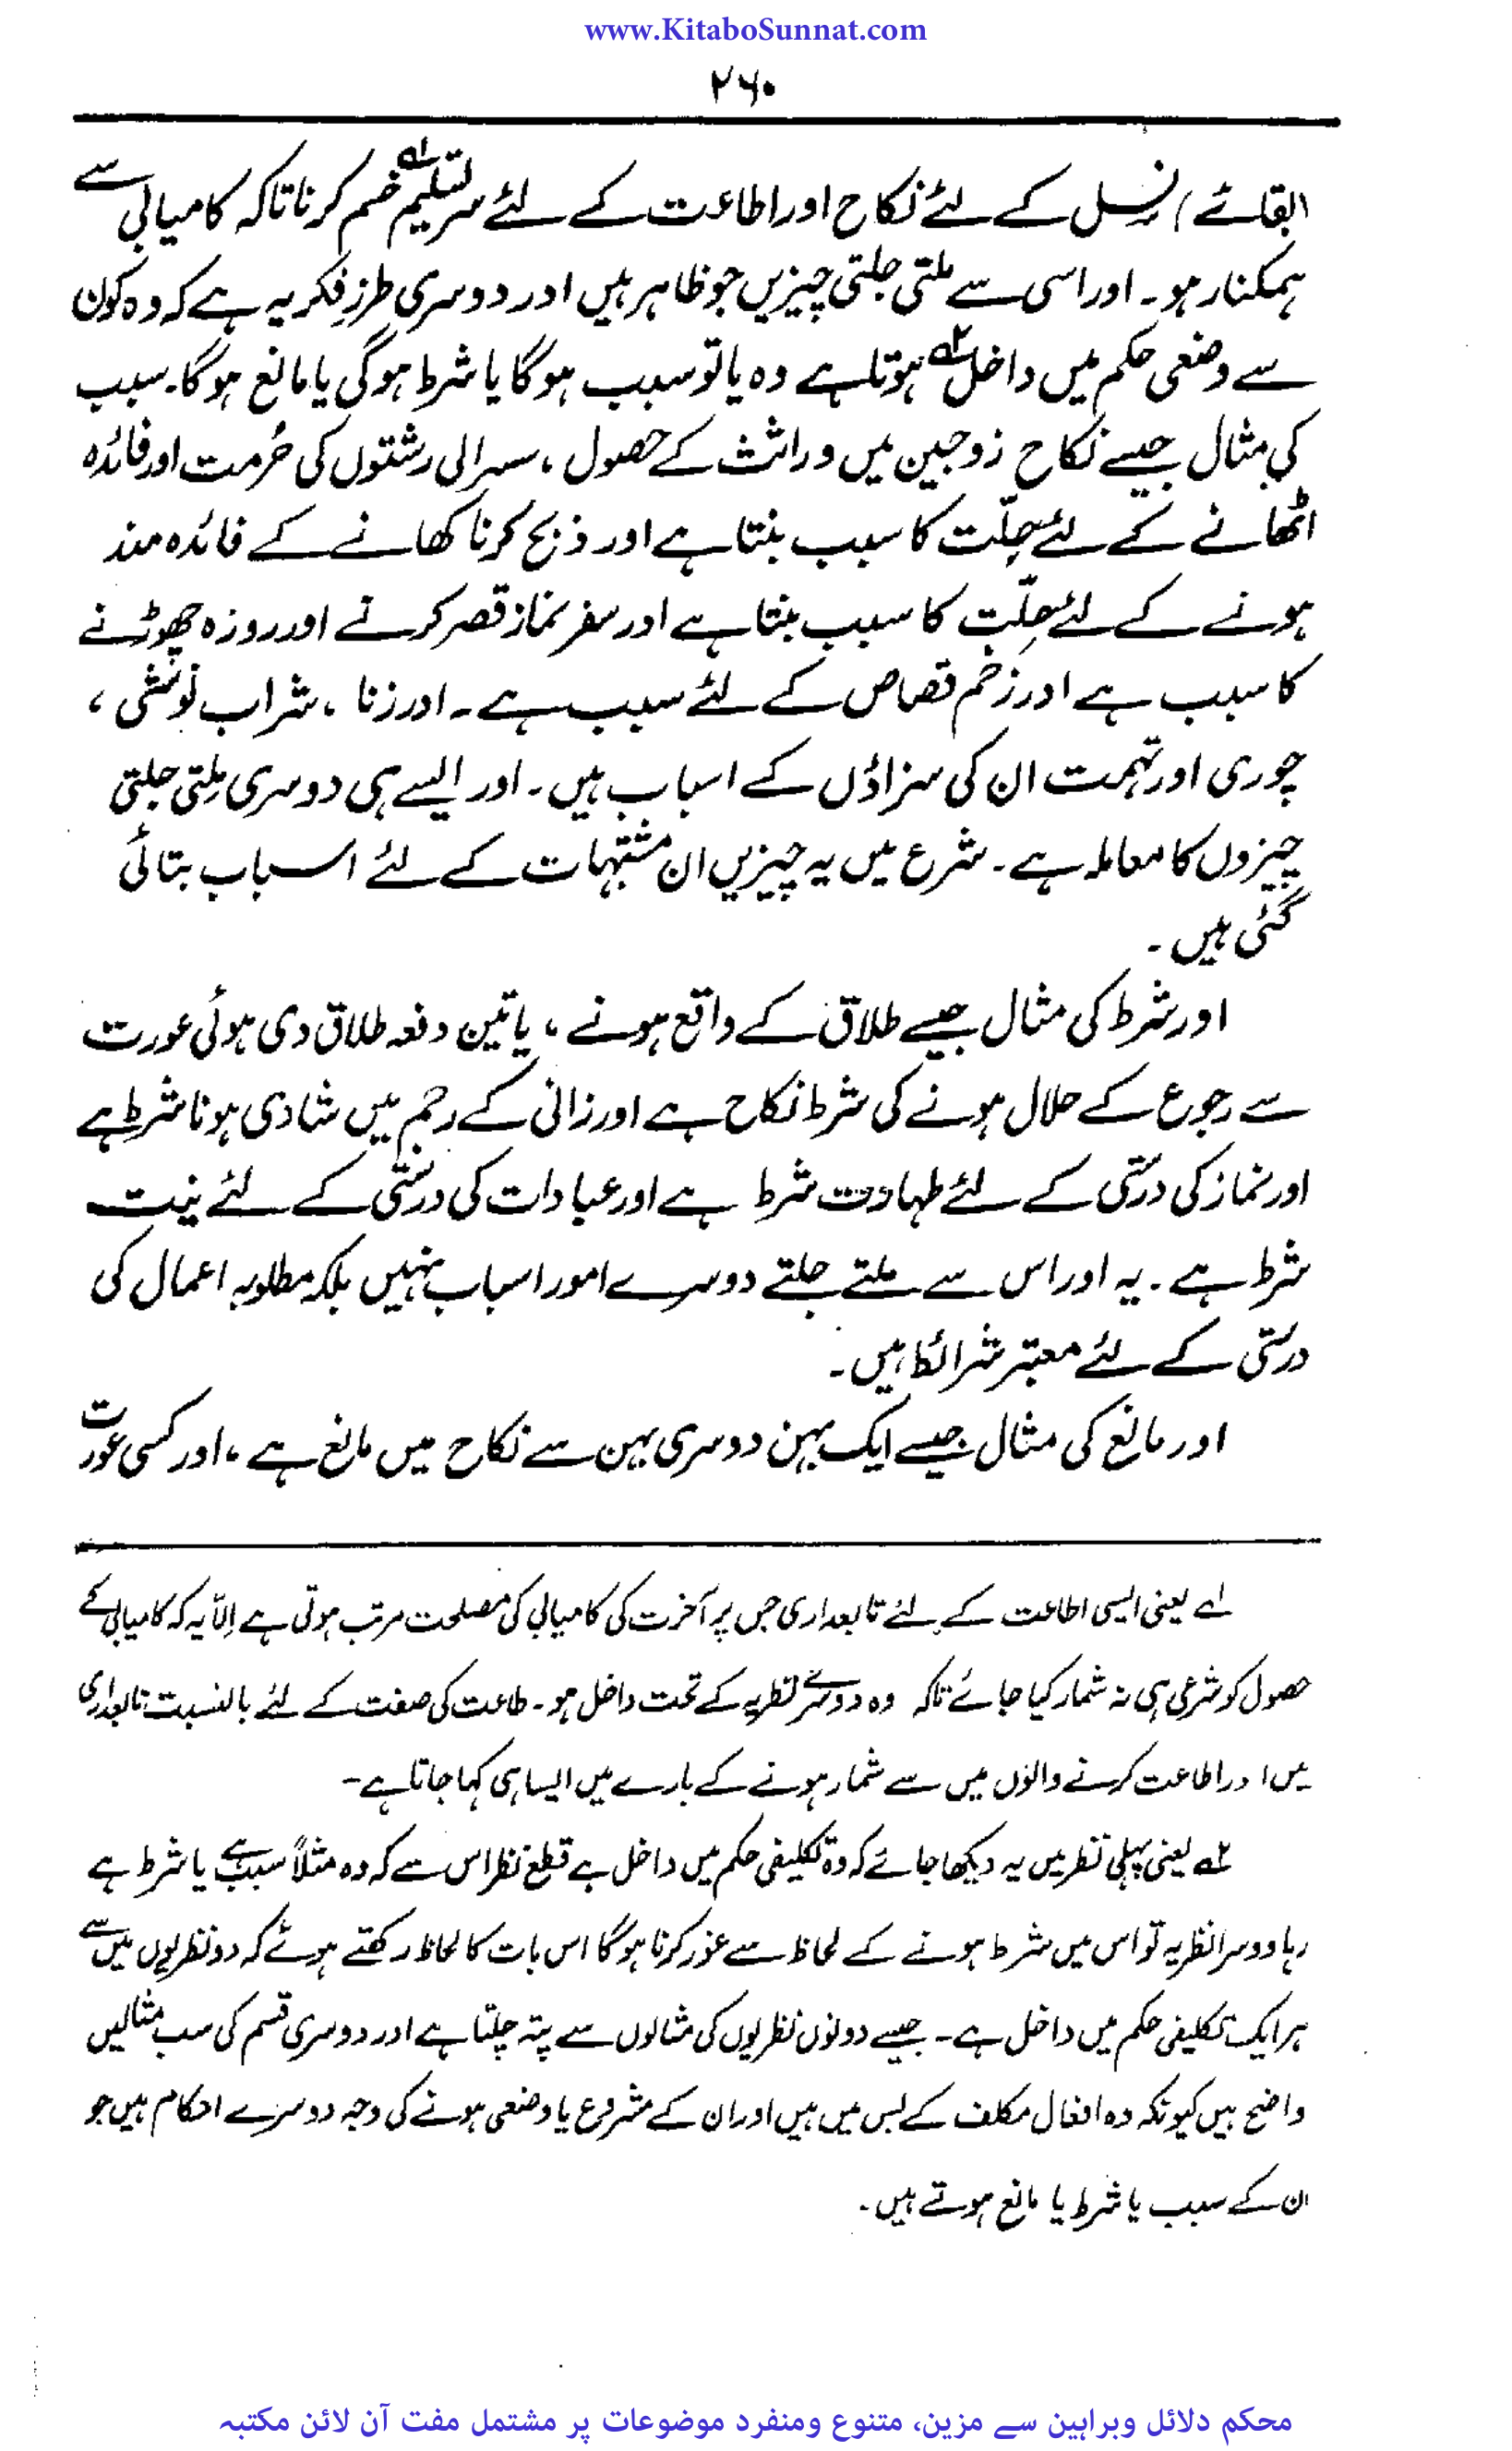 www.KitaboSunnat.com
۲۶۰
ابقائے) نسل کے لئے نکاح اور اطاعت کے لئے سر تسلیم۱؎ خم کرنا تاکہ کامیابی سے
ہمکنار ہو۔ اور اسی سے ملتی جلتی چیزیں جو ظاہر ہیں اور دوسری طرزِ فکر یہ ہے کہ وہ کون
سے وضعی حکم میں داخل۲؎ ہوتا ہے وہ یا تو سبب ہو گا یا شرط ہو گی یا مانع ہو گا۔ سبب
کی مثال جیسے نکاح زوجین میں وراثت کے حصول، سسرالی رشتوں کی حُرمت اور فائدہ
اٹھانے کے لئے حِلّت کا سبب بنتا ہے اور ذبح کرنا کھانے کے فائدہ مند
ہونے کے لئے حِلّت کا سبب بنتا ہے اور سفر نماز قصر کرنے اور روزہ چھوڑنے
کا سبب ہے اور زخم قصاص کے لئے سبب ہے۔ اور زنا، شراب نوشی،
چوری اور تہمت ان کی سزاؤں کے اسباب ہیں۔ اور ایسے ہی دوسری مِلتی جلتی
چیزوں کا معاملہ ہے۔ شرع میں یہ چیزیں ان مشتبہات کے لئے اسباب بتائی
گئی ہیں۔
اور شرط کی مثال جیسے طلاق کے واقع ہونے، یا تین دفعہ طلاق دی ہوئی عورت
سے رجوع کے حلال ہونے کی شرط نکاح ہے اور زانی کے رجم میں شادی ہونا شرط ہے
اور نماز کی درستی کے لئے طہارت شرط ہے اور عبادات کی درستی کے لئے نیت
شرط ہے۔ یہ اور اس سے ملتے جلتے دوسرے امور اسباب نہیں بلکہ مطلوبہ اعمال کی
درستی کے لئے معتبر شرائط ہیں۔
اور مانع کی مثال جیسے ایک بہن دوسری بہن سے نکاح میں مانع ہے، اور کسی عورت
۱؎ یعنی ایسی اطاعت کے لئے تابعداری جس پر آخرت کی کامیابی کی مصلحت مرتب ہوتی ہے اِلّا یہ کہ کامیابی کے
حصول کو شرعی ہی نہ شمار کیا جائے تاکہ وہ دوسرے نظریہ کے تحت داخل ہو۔ طاعت کی صفت کے لئے بالنسبت تابعداری
میں اور اطاعت کرنے والوں میں سے شمار ہونے کے بارے میں ایسا ہی کہا جاتا ہے۔
۲؎ یعنی پہلی نظر میں یہ دیکھا جائے کہ وہ تکلیفی حکم میں داخل ہے قطع نظر اس سے کہ وہ مثلاً سبب ہے یا شرط ہے
رہا دوسرا نظریہ تو اس میں شرط ہونے کے لحاظ سے غور کرنا ہو گا اس بات کا لحاظ رکھتے ہوئے کہ دو نظریوں میں سے
ہر ایک تکلیفی حکم میں داخل ہے۔ جیسے دونوں نظریوں کی مثالوں سے پتہ چلتا ہے اور دوسری قسم کی سب مثالیں
واضح ہیں کیونکہ وہ افعال مکلف کے بس میں ہیں اور ان کے مشروع یا وضعی ہونے کی وجہ دوسرے احکام ہیں جو
ان کے سبب یا شرط یا مانع ہوتے ہیں۔
محکم دلائل وبراہین سے مزین، متنوع ومنفرد موضوعات پر مشتمل مفت آن لائن مکتبہ